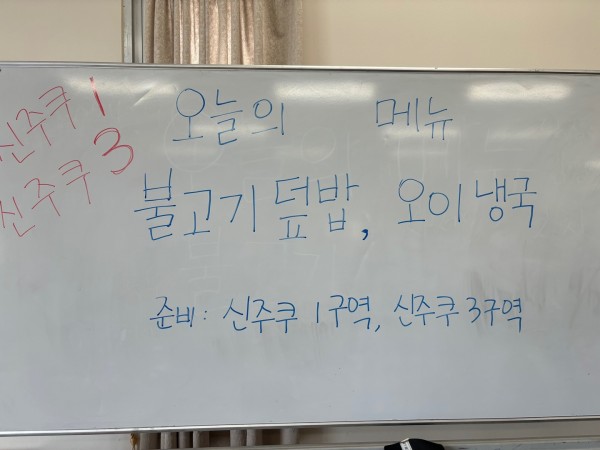 신주쿠 1
신주쿠 3
오늘의 메뉴
불고기 덮밥, 오이 냉국
준비: 신주쿠 1구역, 신주쿠 3구역